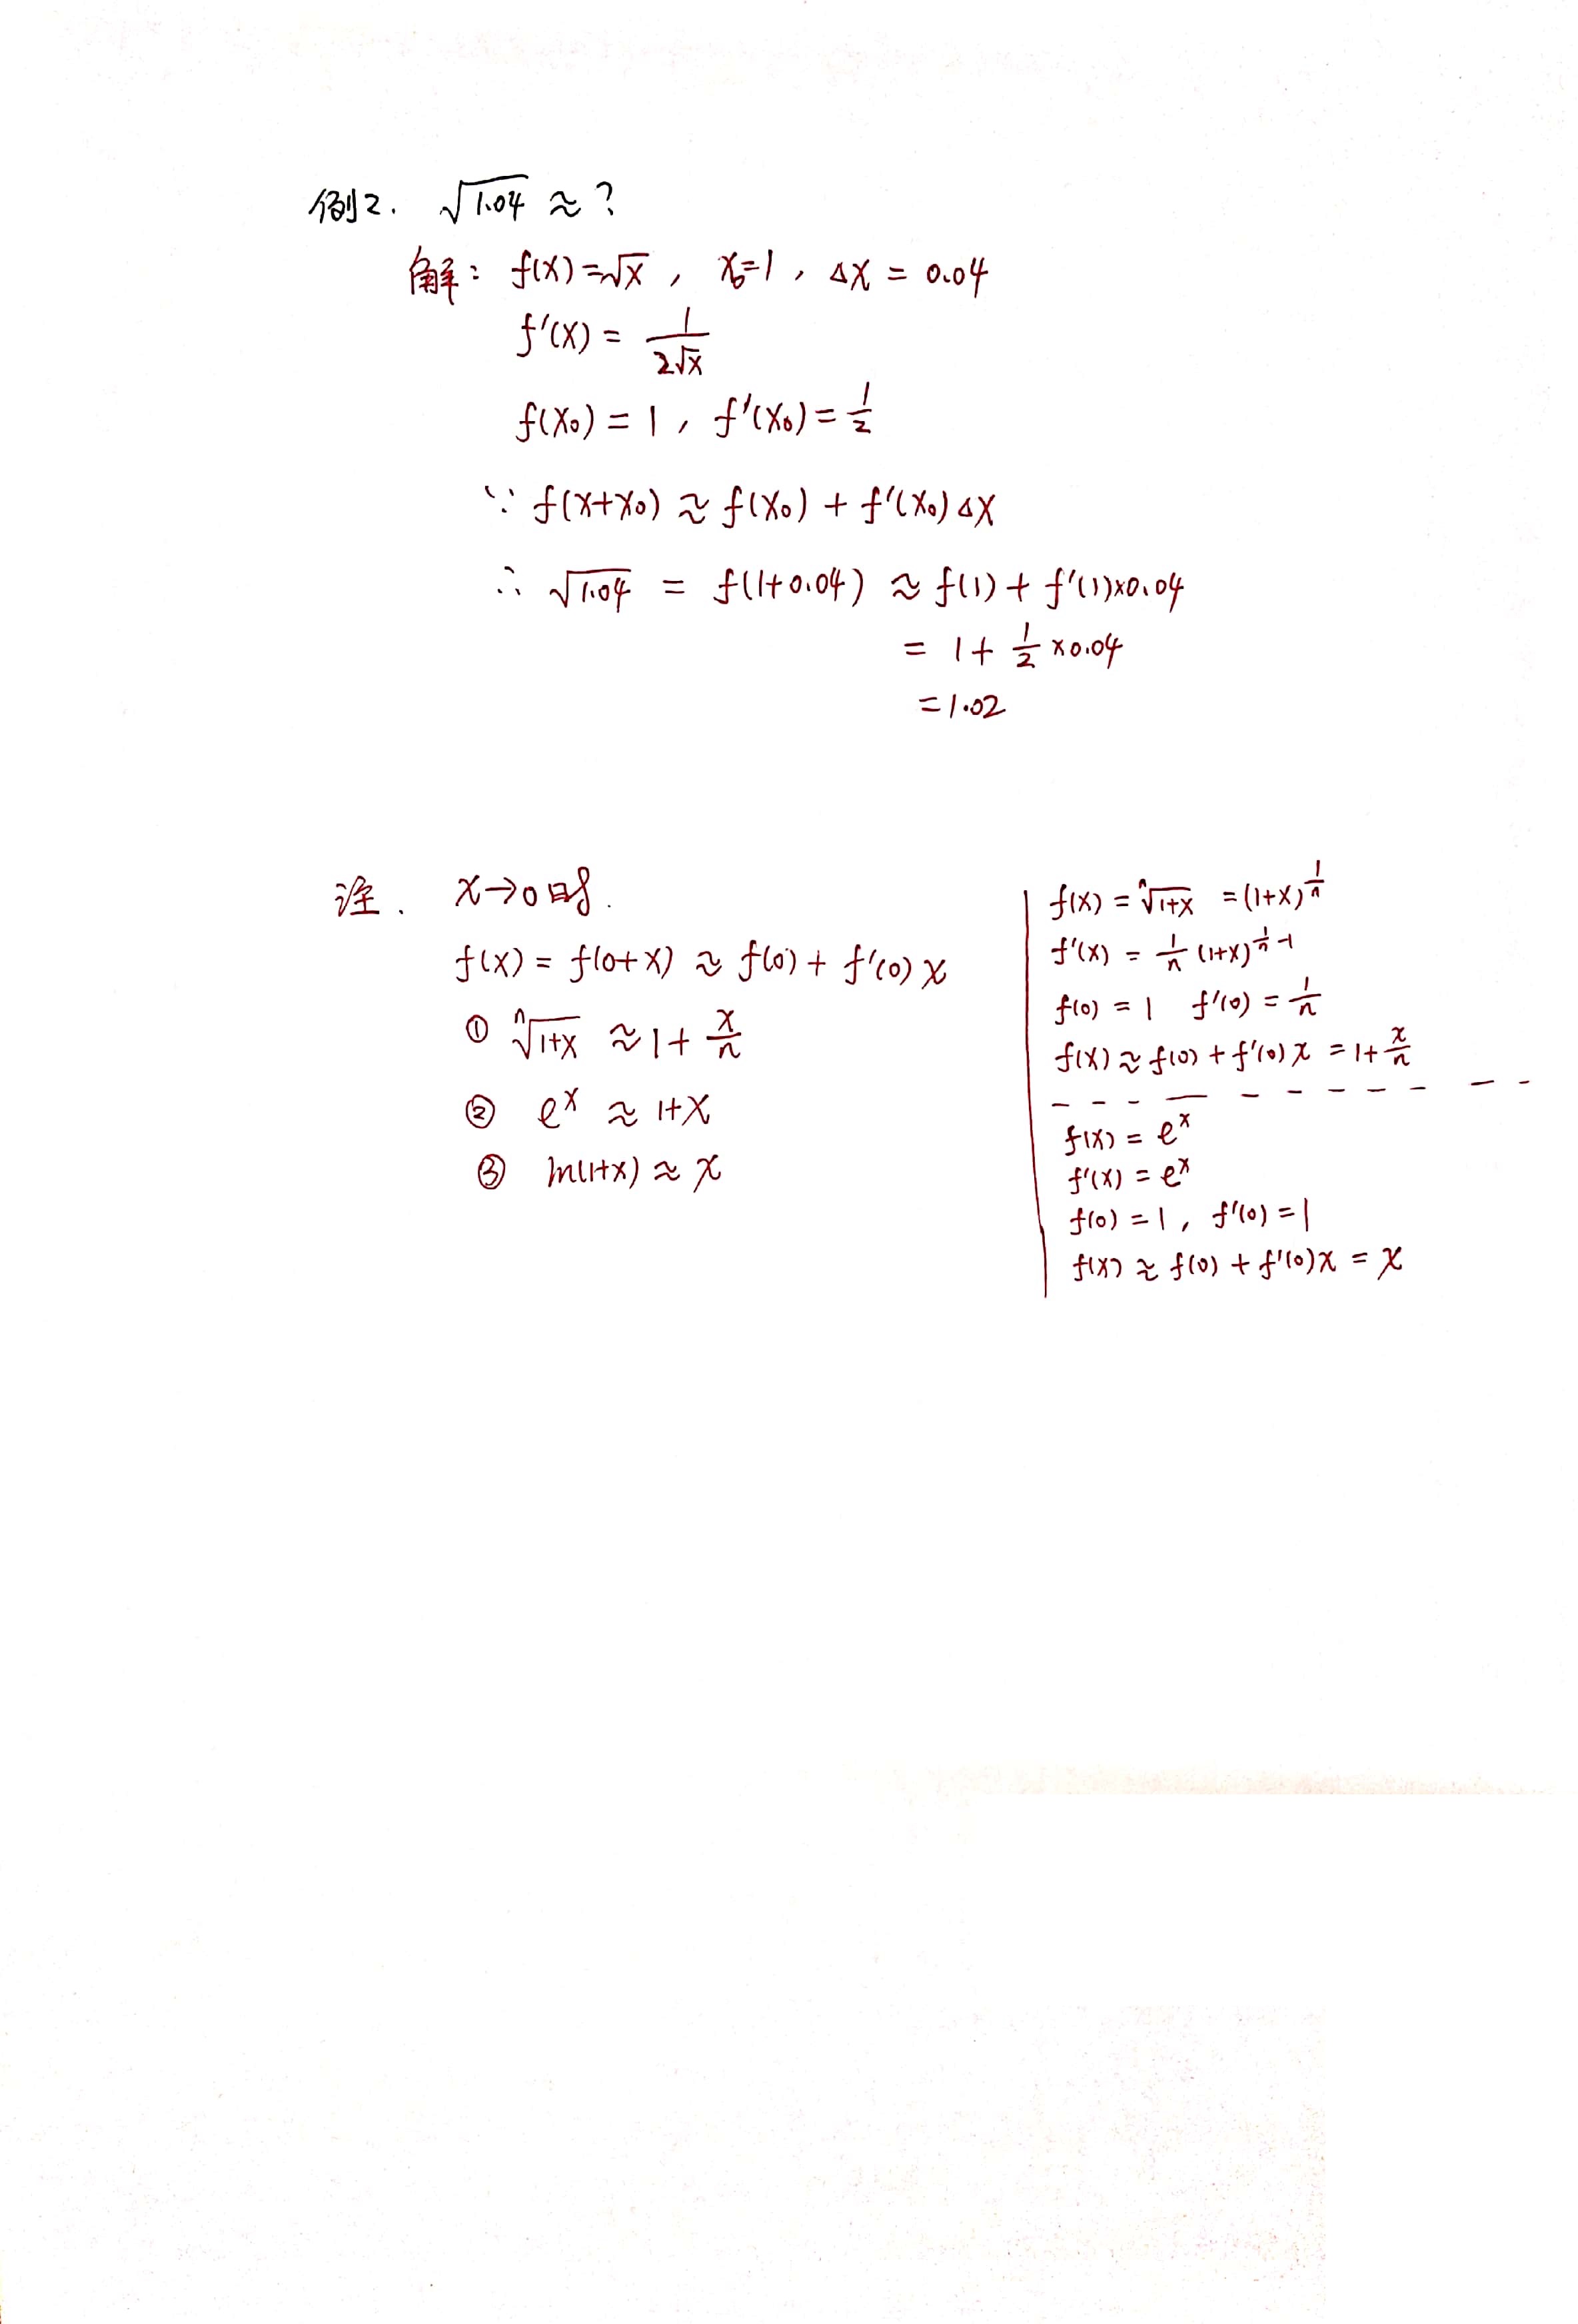 例2. √1.04 ≈ ?
解: f(x)=√x , x₀=1 , Δx = 0.04
f'(x) = 1/(2√x)
f(x₀) = 1 , f'(x₀) = 1/2
∵ f(x+x₀) ≈ f(x₀) + f'(x₀)Δx
∴ √1.04 = f(1+0.04) ≈ f(1) + f'(1)×0.04
= 1 + 1/2 ×0.04
=1.02
注. x→0时.
f(x) = f(0+x) ≈ f(0) + f'(0) x
① ⁿ√(1+x) ≈ 1 + x/n
② eˣ ≈ 1+x
③ ln(1+x) ≈ x
f(x) = ⁿ√(1+x) = (1+x)^(1/n)
f'(x) = 1/n (1+x)^(1/n -1)
f(0) = 1 f'(0) = 1/n
f(x) ≈ f(0) + f'(0) x = 1+ x/n
f(x) = eˣ
f'(x) = eˣ
f(0) = 1 , f'(0) = 1
f(x) ≈ f(0) + f'(0)x = x